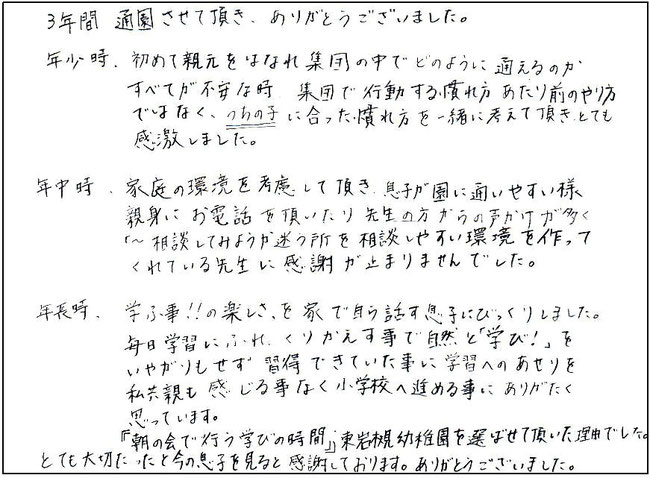 3年間 通園させて頂き、ありがとうございました。
年少時、初めて親元をはなれ集団の中でどのように通えるのか
すべてが不安な時 集団で行動する慣れ方 あたり前のやり方
ではなく、うちの子に合った慣れ方を一緒に考えて頂きとても
感激しました。
年中時、家庭の環境を考慮して頂き 息子が園に通いやすい様
親身にお電話を頂いたり先生の方からの声かけが多く
相談してみようか迷う所を相談しやすい環境を作って
くれている先生に感謝が止まりませんでした。
年長時、学ぶ事!!の楽しさを家で自ら話す息子にびっくりしました。
毎日学習にふれ、くりかえす事で自然と「学び!」を
いやがりもせず 習得できていた事に学習へのあせりを
私共親も感じる事なく小学校へ進める事にありがたく
思っています。
『朝の会で行う学びの時間』東岩槻幼稚園を選ばせて頂いた理由でした。
とても大切だったと今の息子を見ると感謝しております。ありがとうございました。